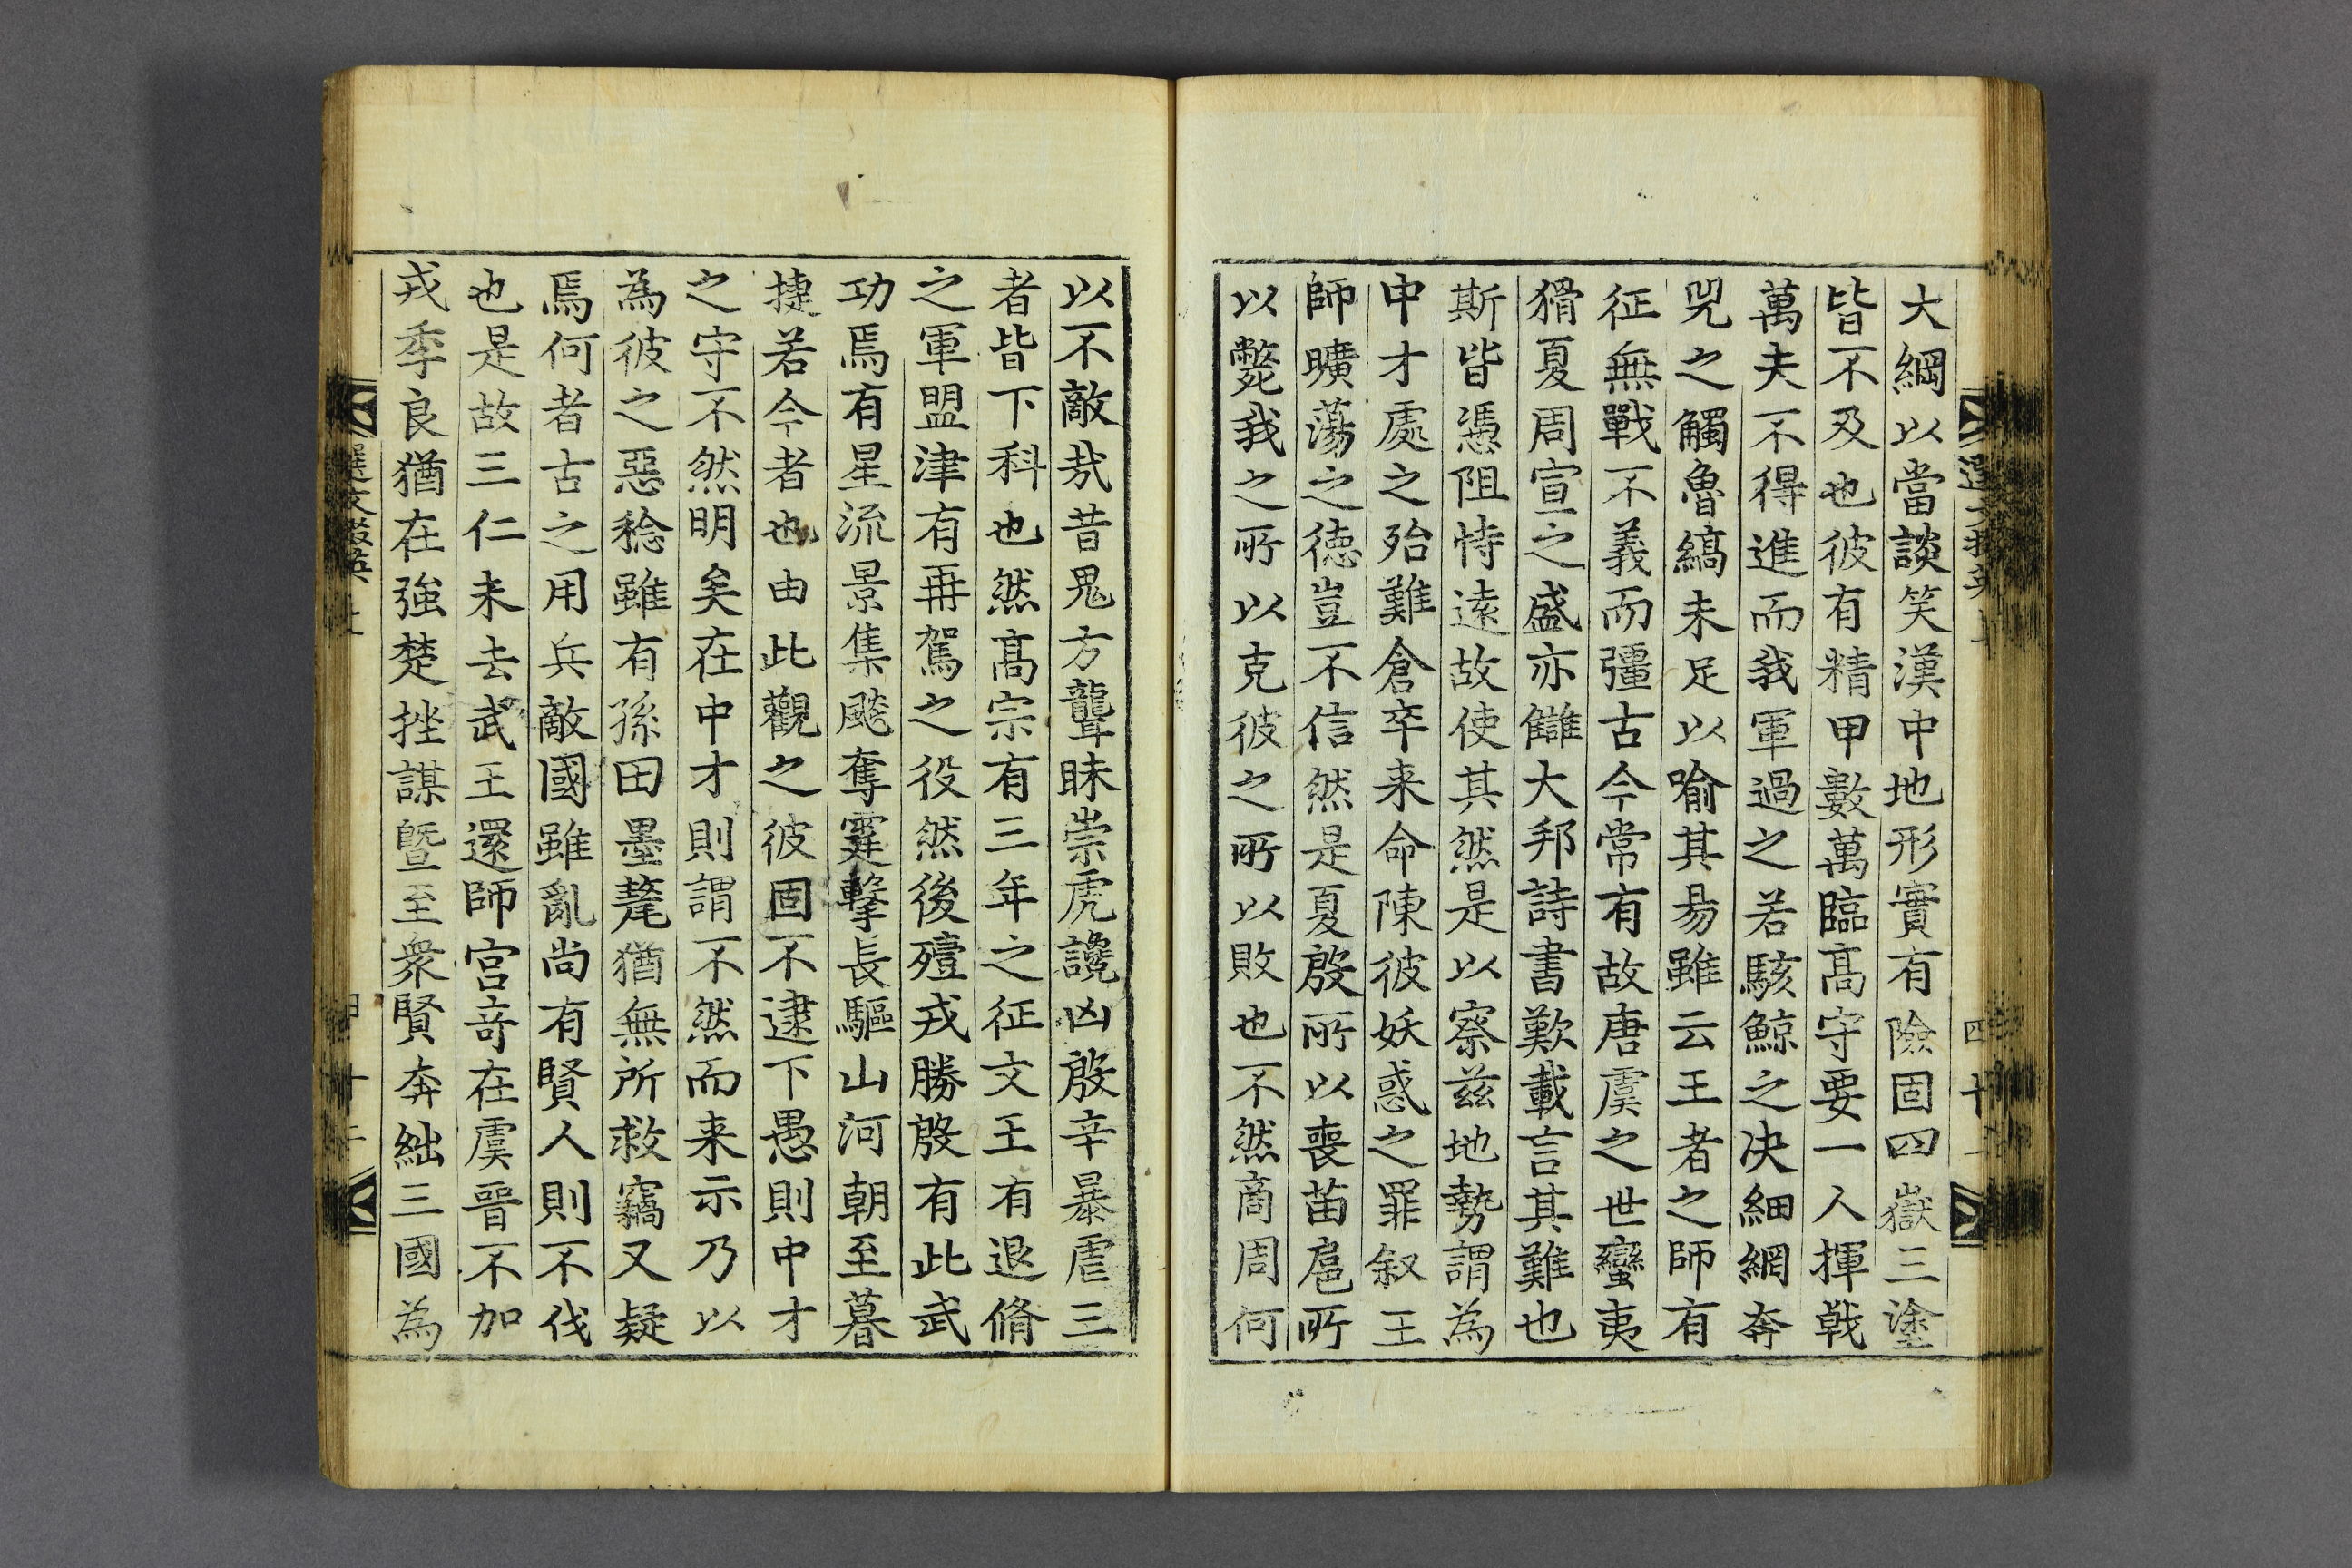 大綱以當談笑漢中地形實有險固四嶽三塗
皆不及也彼有精甲數萬臨髙守要一人揮戟
萬夫不得進而我軍過之若駭鯨之决細網奔
兕之觸魯縞未足以喻其易雖云王者之師有
征無戰不義而彊古今常有故唐虞之世蠻夷
猾夏周宣之盛亦讎大邦詩書歎載言其難也
斯皆憑阻恃逺故使其然是以察兹地勢謂為
中才處之殆難倉卒来命陳彼妖惑之罪叙王
師曠蕩之徳豈不信然是夏殷所以喪苗扈所
以斃我之所以克彼之所以敗也不然商周何
以不敵㢤昔鬼方聾昧崇虎讒凶殷辛暴虐三
者皆下科也然髙宗有三年之征文王有退脩
之軍盟津有再駕之役然後殪戎勝殷有此武
功焉有星流景集飈奪霆擊長驅山河朝至暮
捷若今者也由此觀之彼固不逮下愚則中才
之守不然明矣在中才則謂不然而来示乃以
為彼之惡稔雖有孫田墨氂猶無所救竊又疑
焉何者古之用兵敵國雖亂尚有賢人則不伐
也是故三仁未去武王還師宮竒在虞晉不加
戎季良猶在強楚挫謀曁至衆賢奔絀三國為